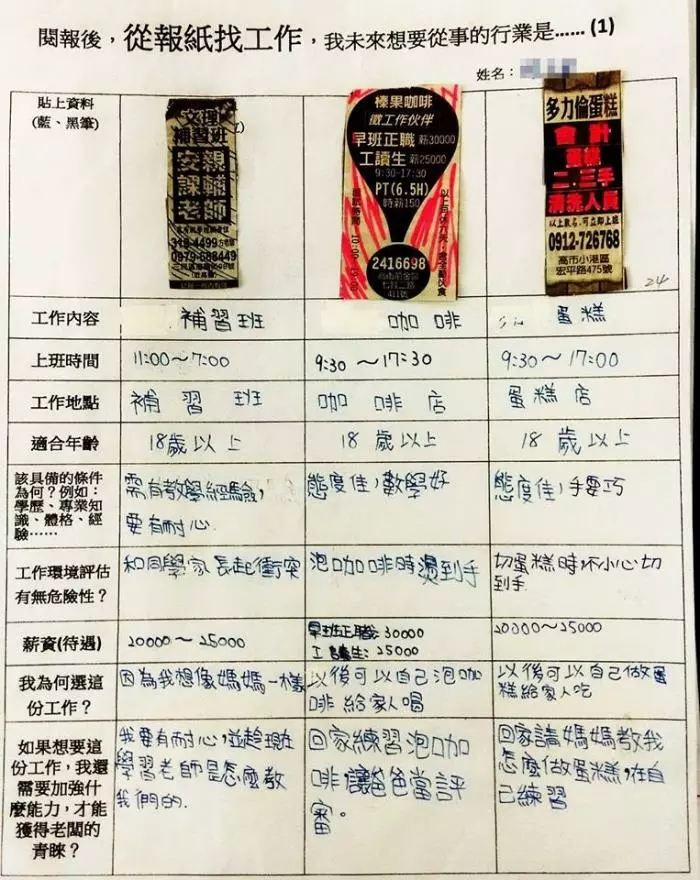 閱報後，從報紙找工作，我未來想要從事的行業是...... (1)
姓名：
貼上資料
(藍、黑筆)
文理
補習班
安親
課輔
老師
319-4499
0979-688449
榛果咖啡
徵工作伙伴
早班正職 薪30000
工讀生 薪25000
9:30-17:30
PT(6.5H)
時薪150
2416698
高市前金區
七賢二路
411號
多力倫蛋糕
會計
蛋糕
二、三手
清潔人員
以上數名，可立即上班
0912-726768
高市小港區
宏平路475號
24
工作內容 補習班 咖啡 蛋糕
上班時間 11:00～7:00 9:30～17:30 9:30～17:00
工作地點 補習班 咖啡店 蛋糕店
適合年齡 18歲以上 18歲以上 18歲以上
該具備的條件
為何？例如：
學歷、專業知
識、體格、經
驗……
需有教學經驗，
要有耐心.
態度佳，數學好
態度佳，手要巧
工作環境評估
有無危險性？
和同學家長起衝突
泡咖啡時燙到手
切蛋糕時不小心切
到手.
薪資(待遇)
20000～25000
早班正職：30000
工讀生：25000
20000～25000
我為何選這
份工作？
因為我想像媽媽一樣
以後可以自己泡咖
啡給家人喝
以後可以自己做蛋
糕給家人吃
如果想要這
份工作，我還
需要加強什
麼能力，才能
獲得老闆的
青睞？
我要有耐心，並趁現在
學習老師是怎麼教
我們的.
回家練習泡咖
啡讓爸爸當評
審。
回家請媽媽教我
怎麼做蛋糕，在自
己練習